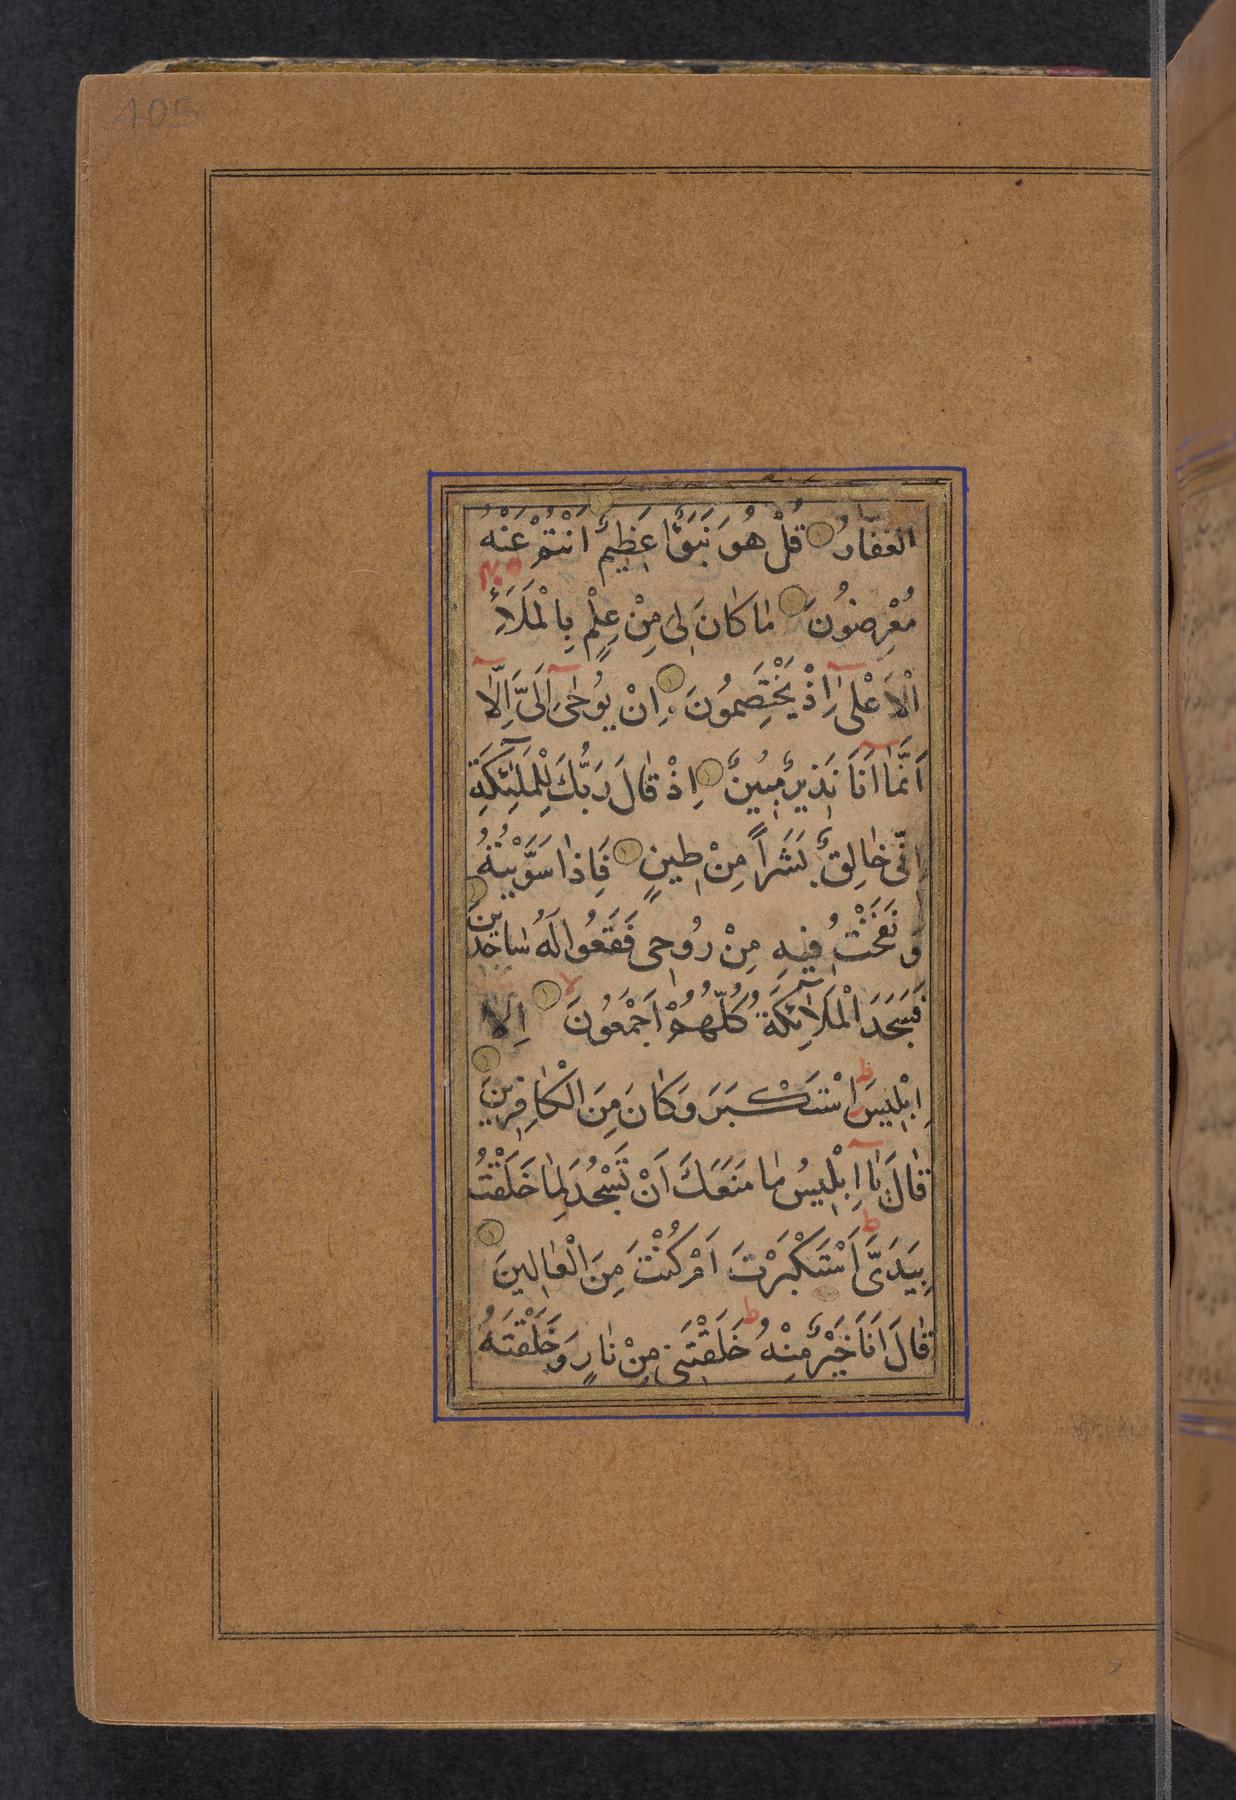 405
الغفّارُ قُلْ هُوَ نَبَؤٌا عَظِيمٌ اَنْتُمْ عَنْهُ
مُعْرِضُونَ مٰا كٰانَ لِىٰ مِنْ عِلْمٍ بِالْمَلَاَءِ
اْلاَعْلىٰٓ اِذْ يَخْتَصِمُونَ اِنْ يُوحٰىٓ اِلَىَّ اِلّٰآ
اَنَّمٰآ اَنَا نَذِيرٌ مُبِينٌ اِذْ قٰالَ رَبُّكَ لِلْمَلٰٓئِكَةِ
اِنّى خٰالِقٌ بَشَراً مِنْ طِينٍ فَاِذٰا سَوَّيْتُهُ
وَنَفَخْتُ فِيهِ مِنْ رُوحِى فَقَعُوا لَهُ سٰاجِدِينَ
فَسَجَدَ الْمَلآئِكَةُ كُلُّهُمْ اَجْمَعُونَ اِلا
اِبْلِيسَ اسْتَكْبَرَ وَكٰانَ مِنَ الْكٰافِرِينَ
قٰالَ يٰآ اِبْلِيسُ مٰا مَنَعَكَ اَنْ تَسْجُدَ لِمٰا خَلَقْتُ
بِيَدَىَّ اَسْتَكْبَرْتَ اَمْ كُنْتَ مِنَ الْعٰالِينَ
قٰالَ اَنَا خَيْرٌ مِنْهُ خَلَقْتَنِى مِنْ نٰارٍ وَخَلَقْتَهُ